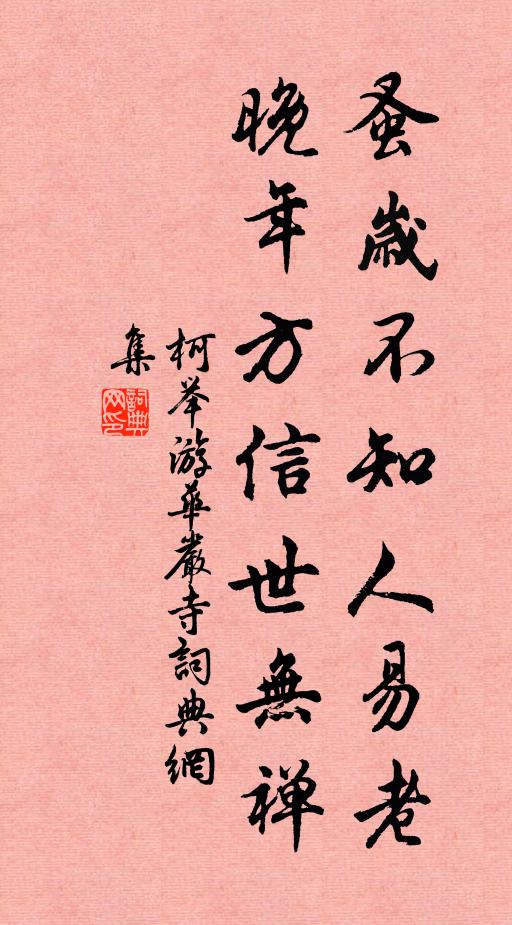 蚤歲不知人易老
晚年方信世無禅
柯举游華嚴寺詞典網
集
詞典网印